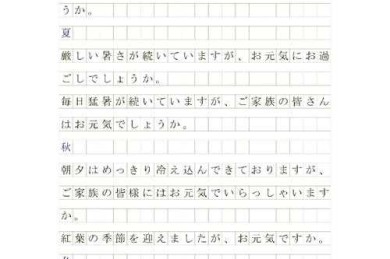 うか。
夏
厳しい暑さが続いていますが、お元気にお過
ごしでしょうか。
毎日猛暑が続いていますが、ご家族の皆さん
はお元気でしょうか。
秋
朝夕はめっきり冷え込んできておりますが、
ご家族の皆様にはお元気でいらっしゃいます
か。
紅葉の季節を迎えましたが、お元気ですか。